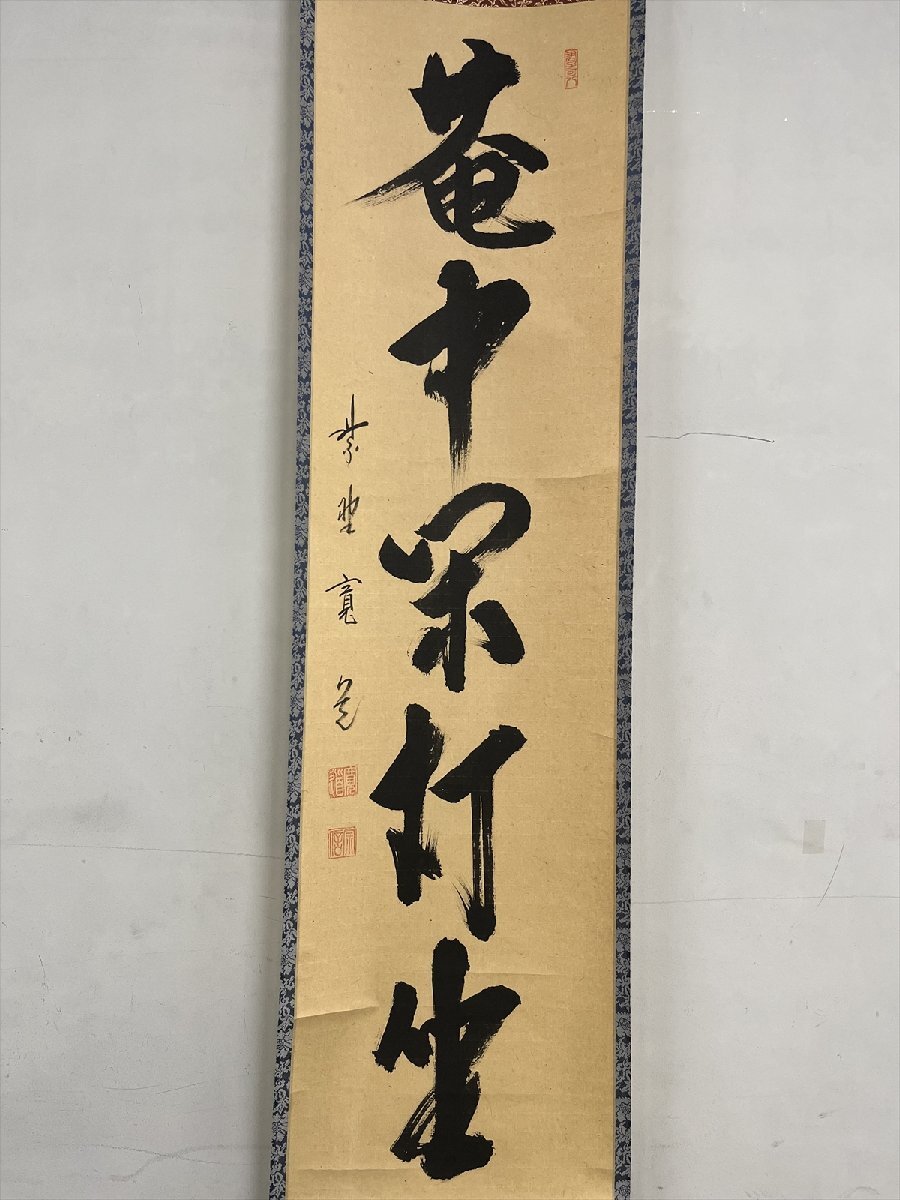 菴中閑打坐
紫野寛道